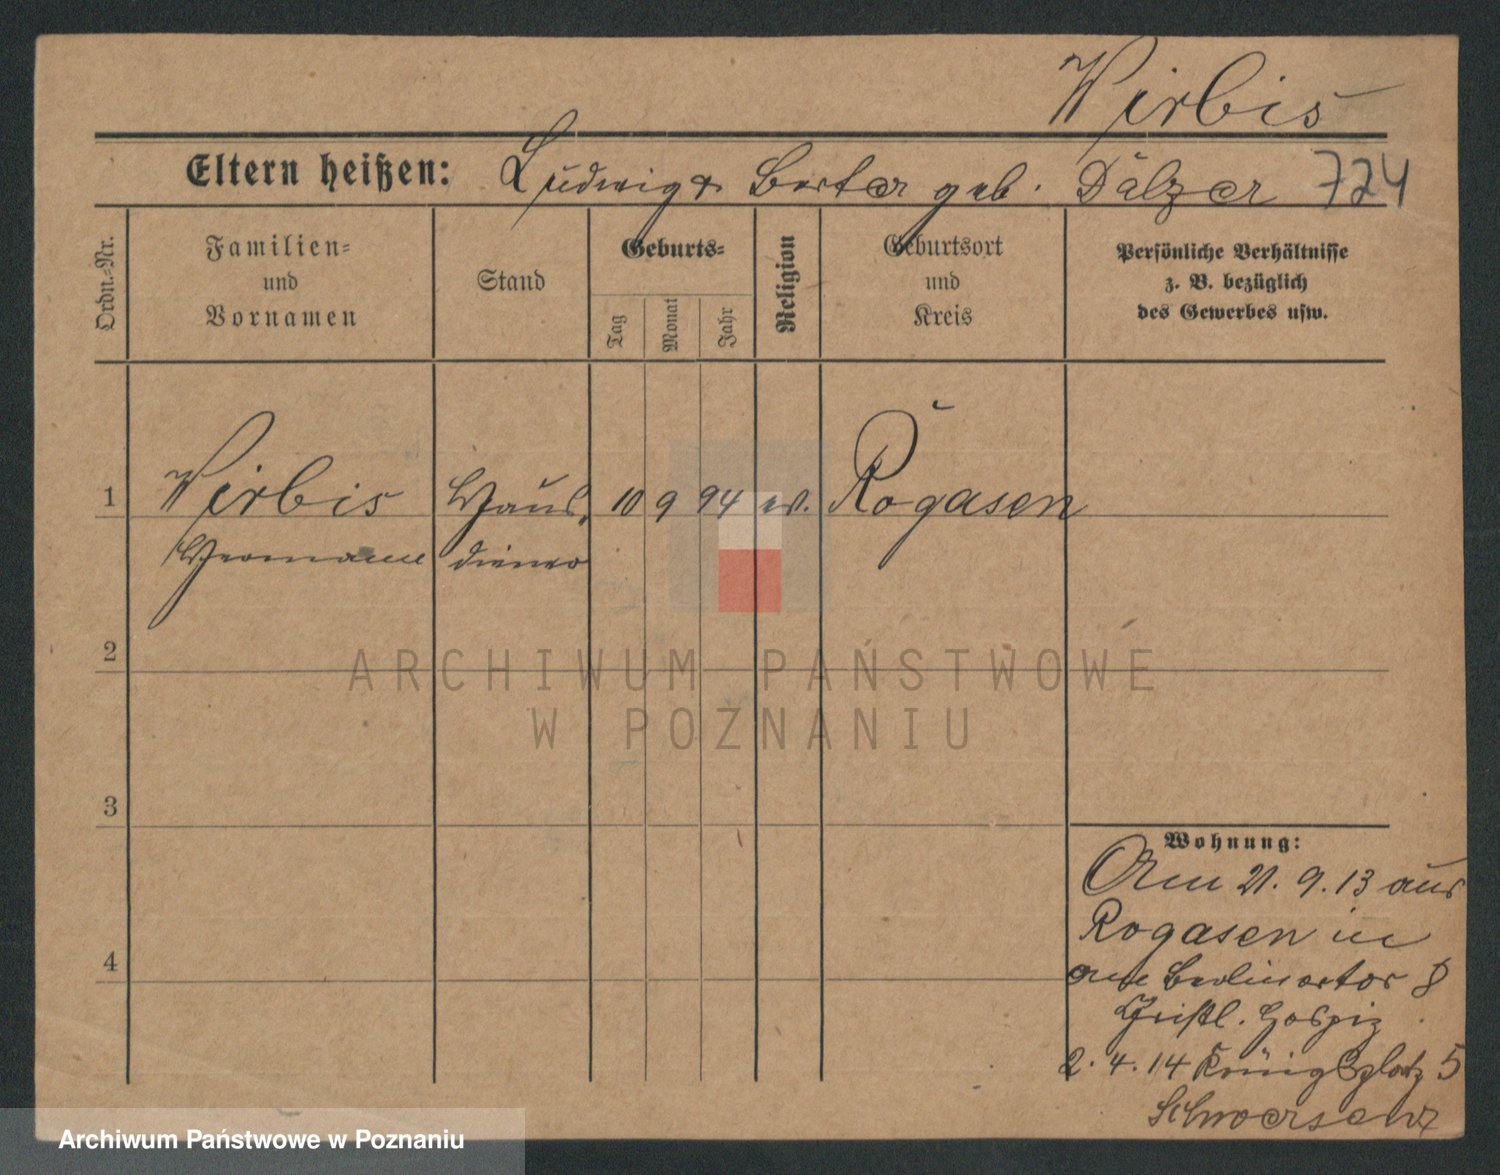 Wirbis
Eltern heißen: Ludwig & Berta geb. Dälzer 724
Ordn.-Nr.
Familien-
und
Vornamen
Stand
Geburts-
Tag
Monat
Jahr
Religion
Geburtsort
und
Kreis
Persönliche Verhältnisse
z. B. bezüglich
des Gewerbes usw.
1 Wirbis Haus- 10 9 94 ev. Rogasen
Hermann diener
2
3
4
Wohnung:
Am 21. 9. 13 aus
Rogasen in
am Berlinertor 8
Hospiz
2. 4. 14 Königsplatz 5
Schwersenz
ARCHIWUM PAŃSTWOWE
W POZNANIU
Archiwum Państwowe w Poznaniu